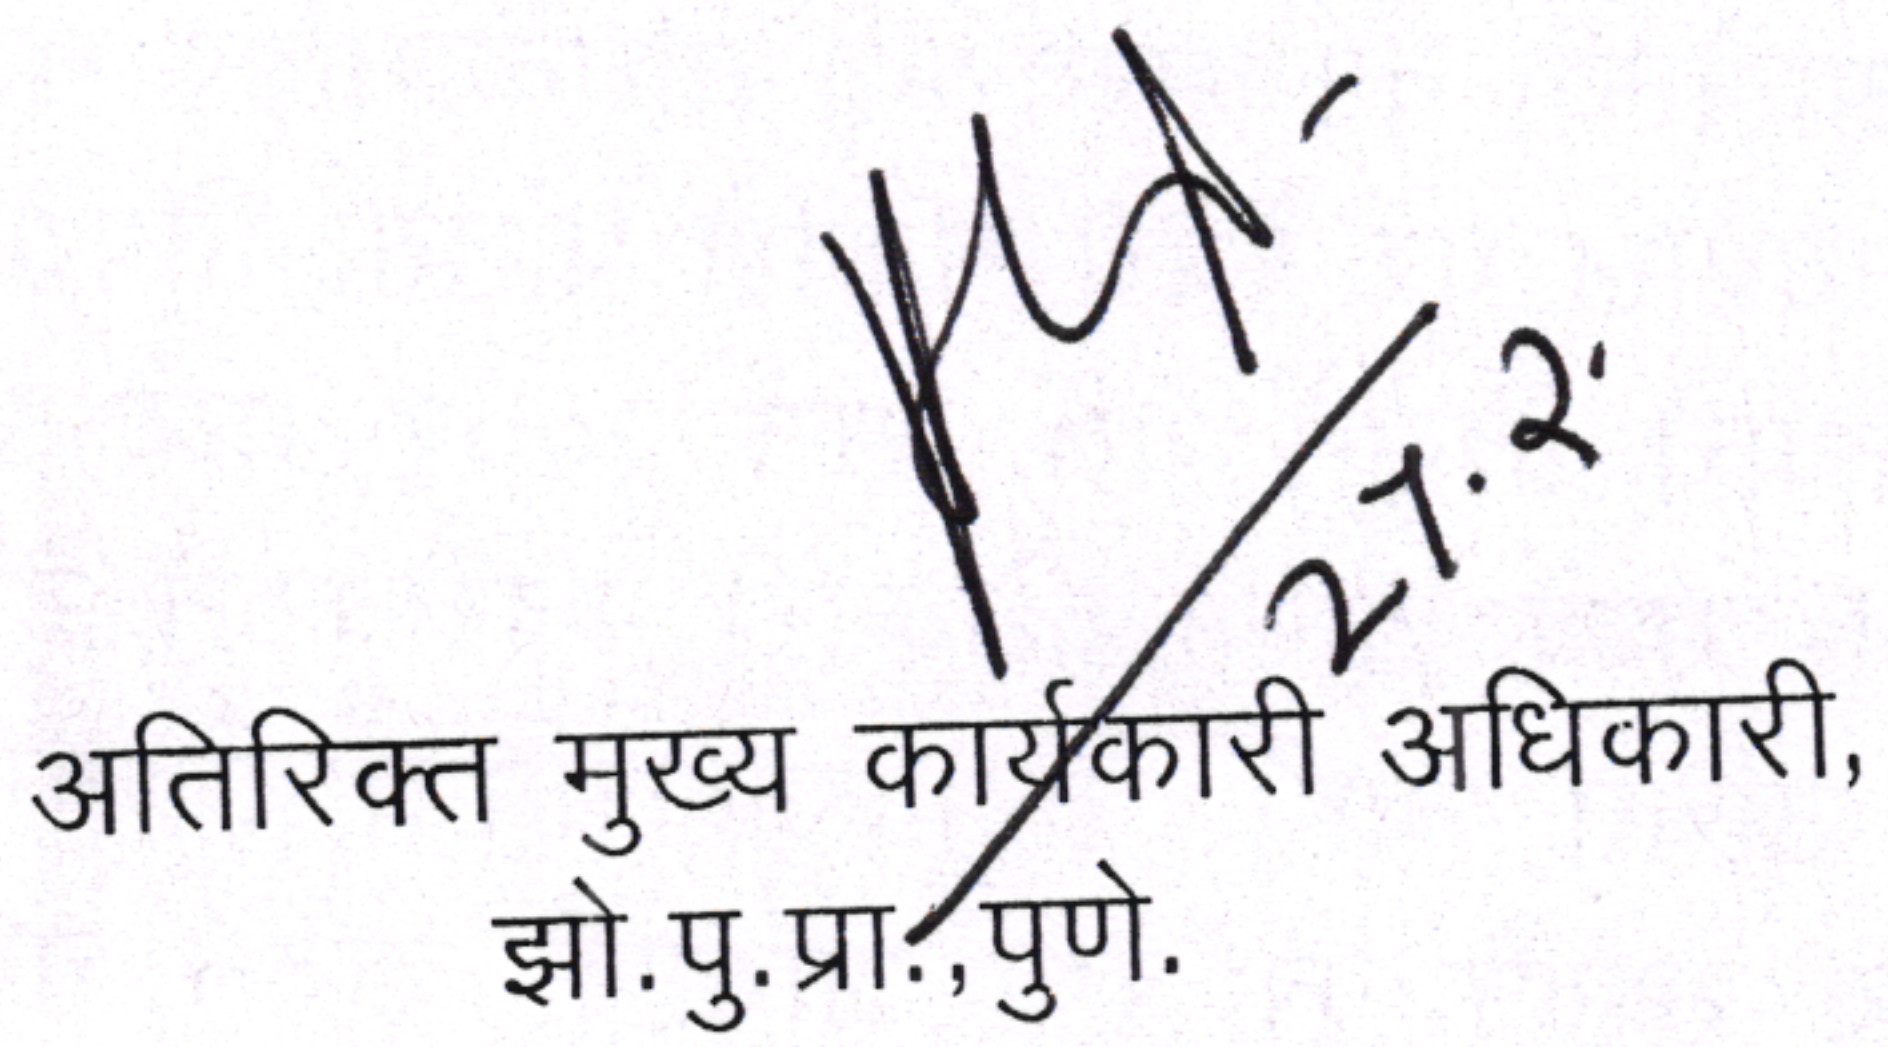 27.2.
अतिरिक्त मुख्य कार्यकारी अधिकारी,
झो.पु.प्रा.,पुणे.